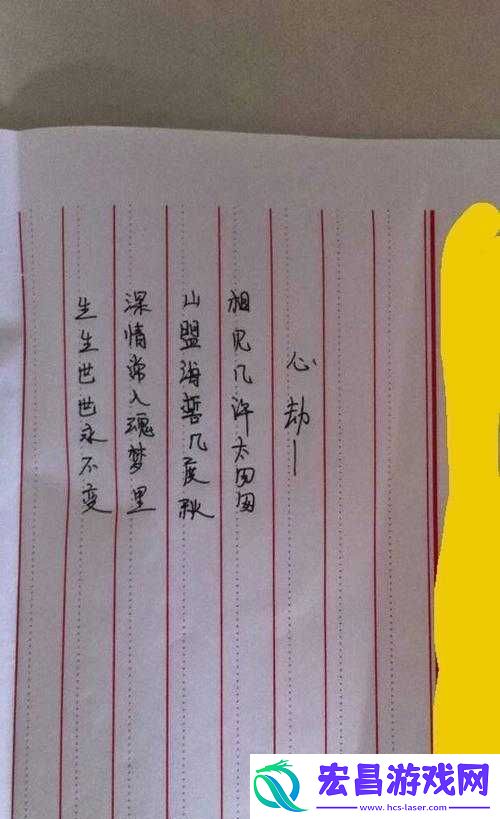 心劫一
相见几许太匆匆
山盟海誓几度秋
深情常入魂梦里
生生世世永不变
宏昌游戏网
www.hcs-laser.com